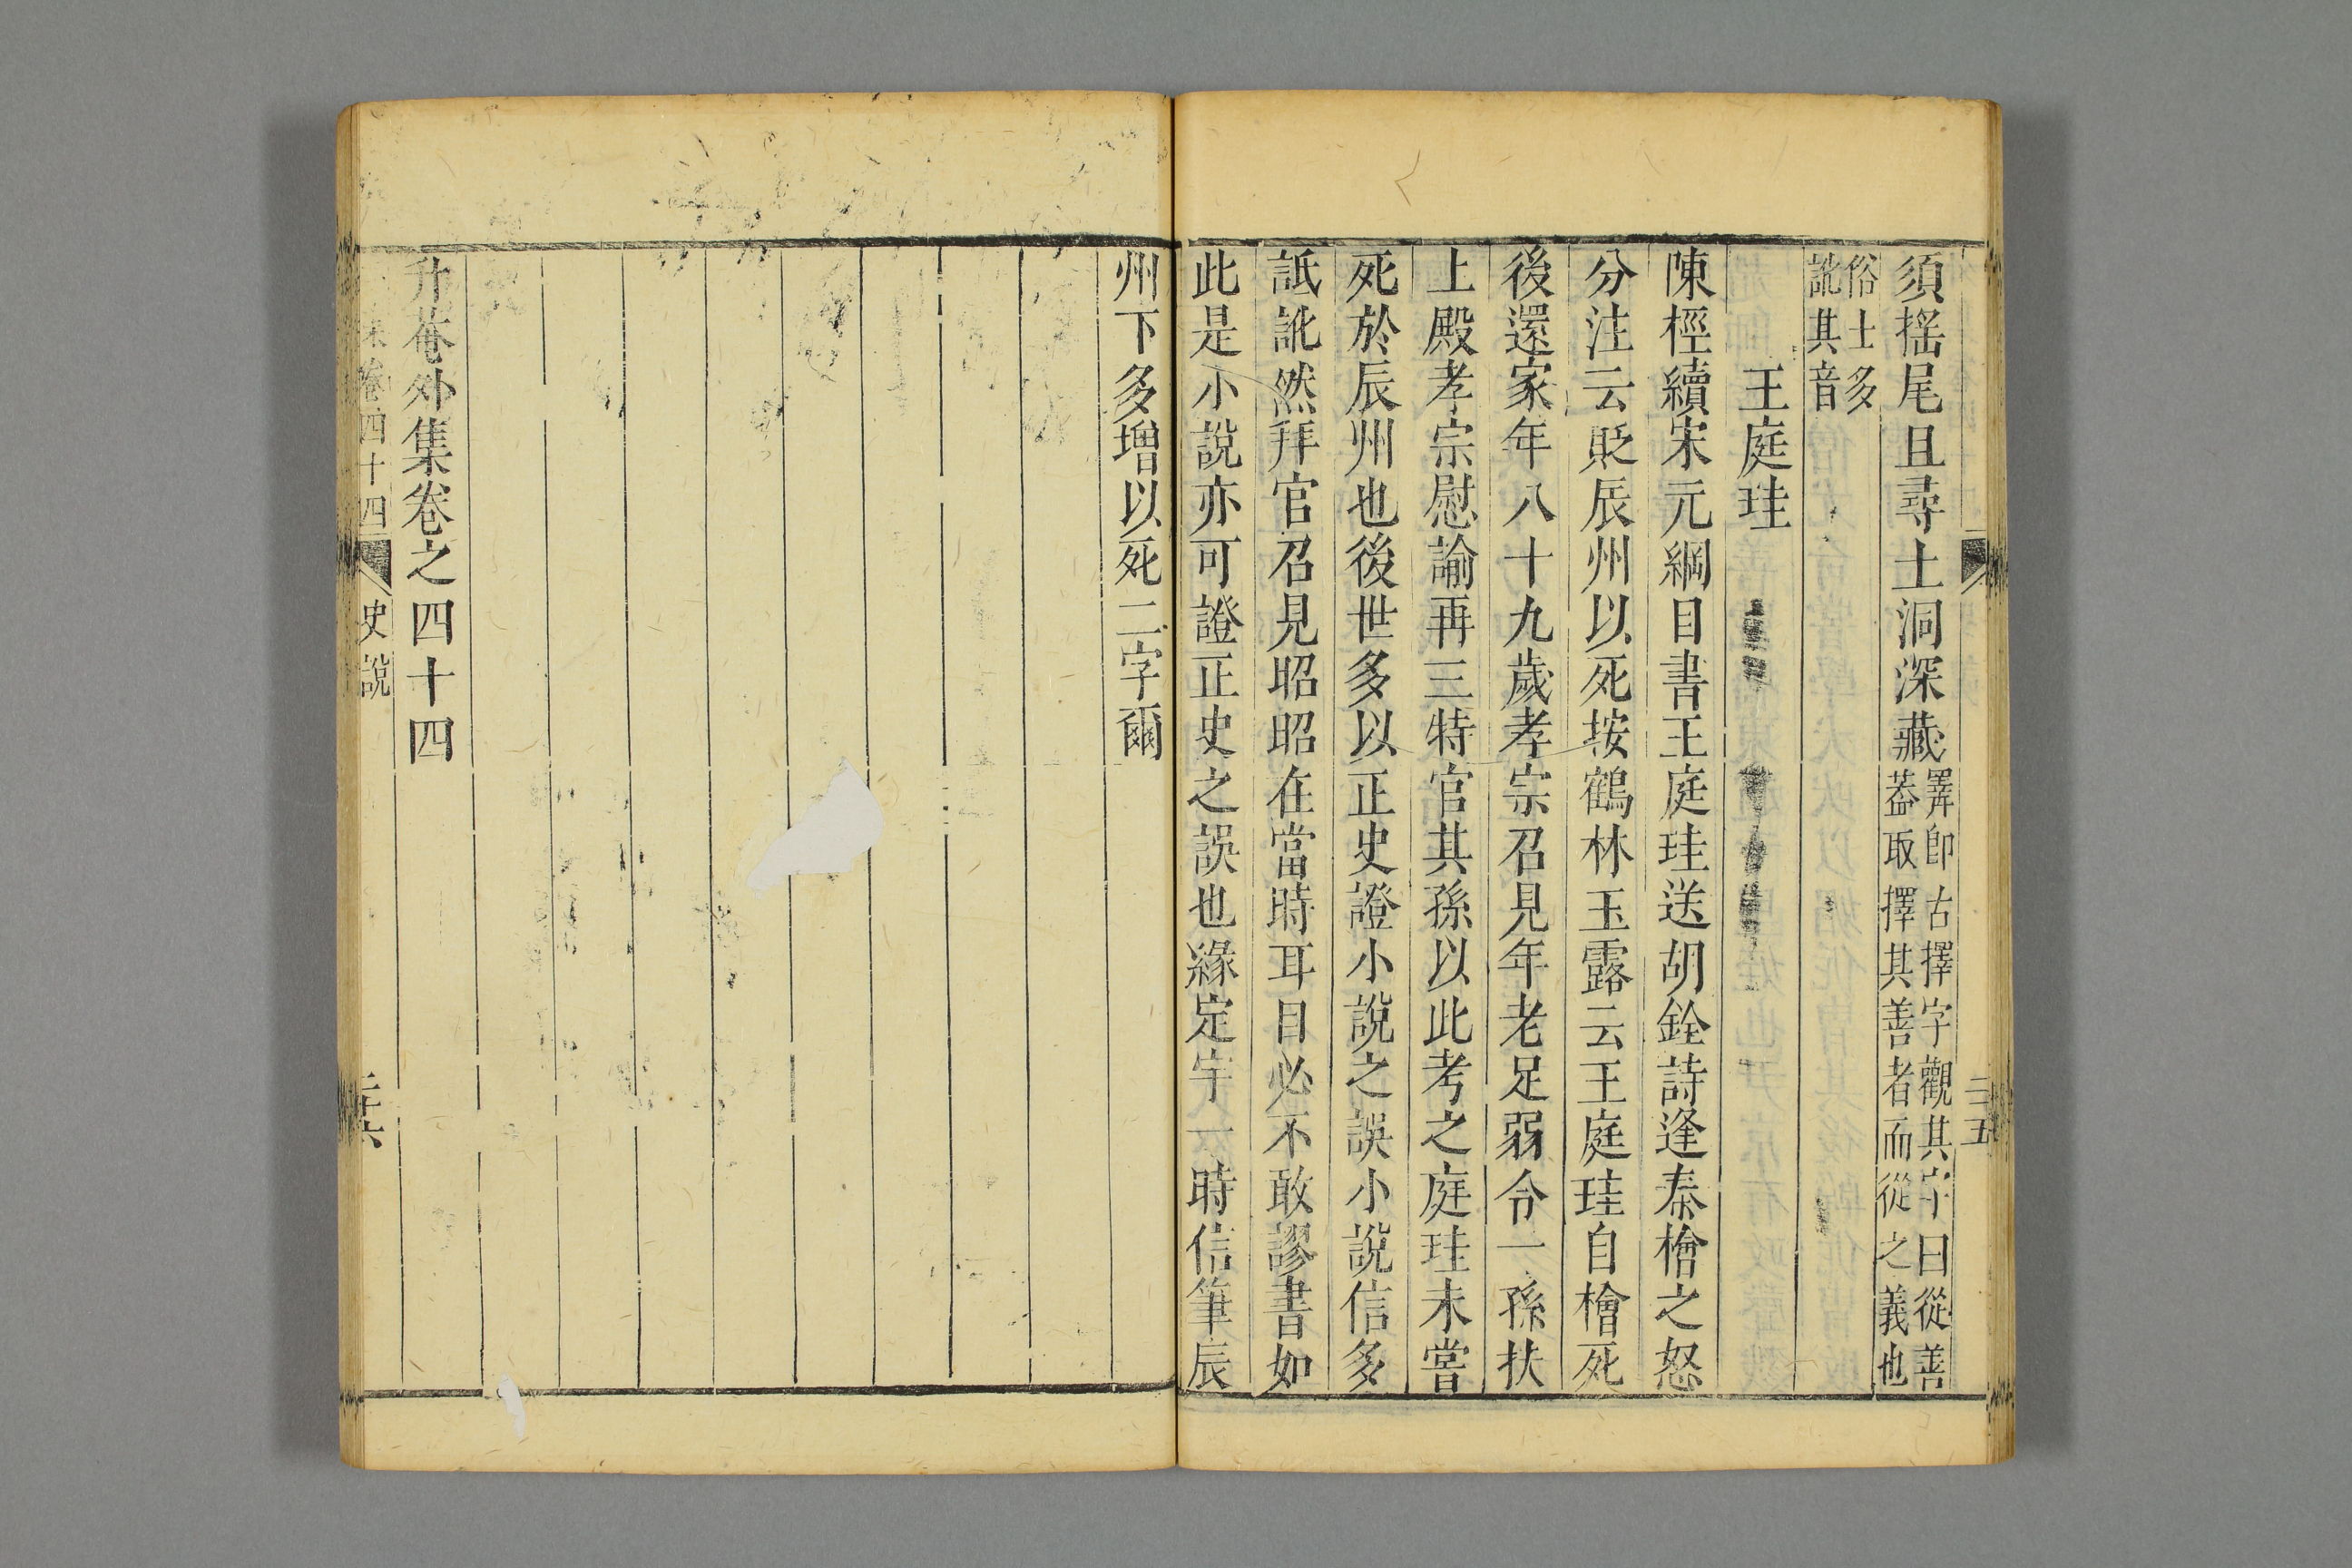 須揺尾且尋土洞深藏睪卽古擇字觀其字曰從善
葢取擇其善者而從之義也
俗士多
訛其音
王庭珪
陳桱續宋元綱目書王庭珪送胡銓詩逢秦檜之怒
分注云貶辰州以死按鶴林玉露云王庭珪自檜死
後還家年八十九歲孝宗召見年老足弱令一孫扶
上殿孝宗慰諭再三特官其孫以此考之庭珪未嘗
死於辰州也後世多以正史證小說之誤小說信多
詆訛然拜官召見昭昭在當時耳目必不敢謬書如
此是小說亦可證正史之誤也緣定宇一時信筆辰
州下多增以死二字爾
升菴外集卷之四十四
卷四十四
史說
三十六